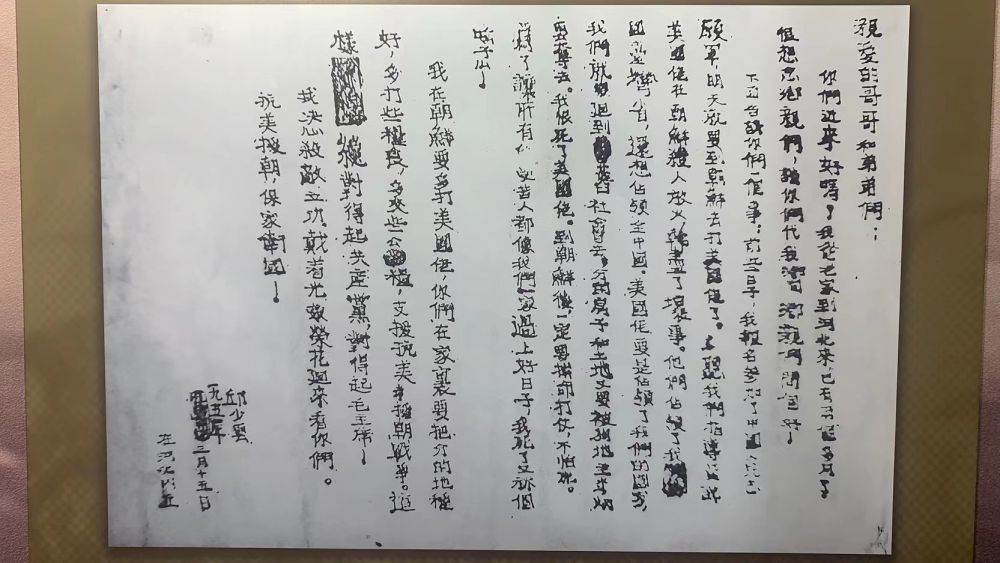 親愛的哥哥和弟弟們：
你們近來好嗎？我從老家到河北來，已有 個多月了
很想念鄉親們，請你們代我向鄉親們問個好！
下面告訴你們一個事：前些日子，我報名參加了中國人民志
願軍，明天就要到朝鮮去打美國佬了。 聽我們指導員講
美國佬在朝鮮殺人放火，幹盡了壞事。他們佔領了我
國臺灣省，還想佔領全中國。美國佬要是佔領了我們的國家，
我們就要退到舊社會去，分的房子和土地又要被狗地主
奪去。我恨死了美國佬。到朝鮮後一定要拼命打仗，不怕死。
爲了讓所有 受苦人都像我們一家過上好日子，我死了又祘個
啥子么！
我在朝鮮要多打美國佬，你們在家裏要把分的地種
好，多打些糧食，多交些公糧，支援抗美援朝戰爭。這
樣 纔對得起共產黨，對得起毛主席！
我決心殺敵立功，戴着光榮花回來看你們。
抗美援朝，保家衛國！
邱少雲
一九五一年
三月十五日
在河北內丘